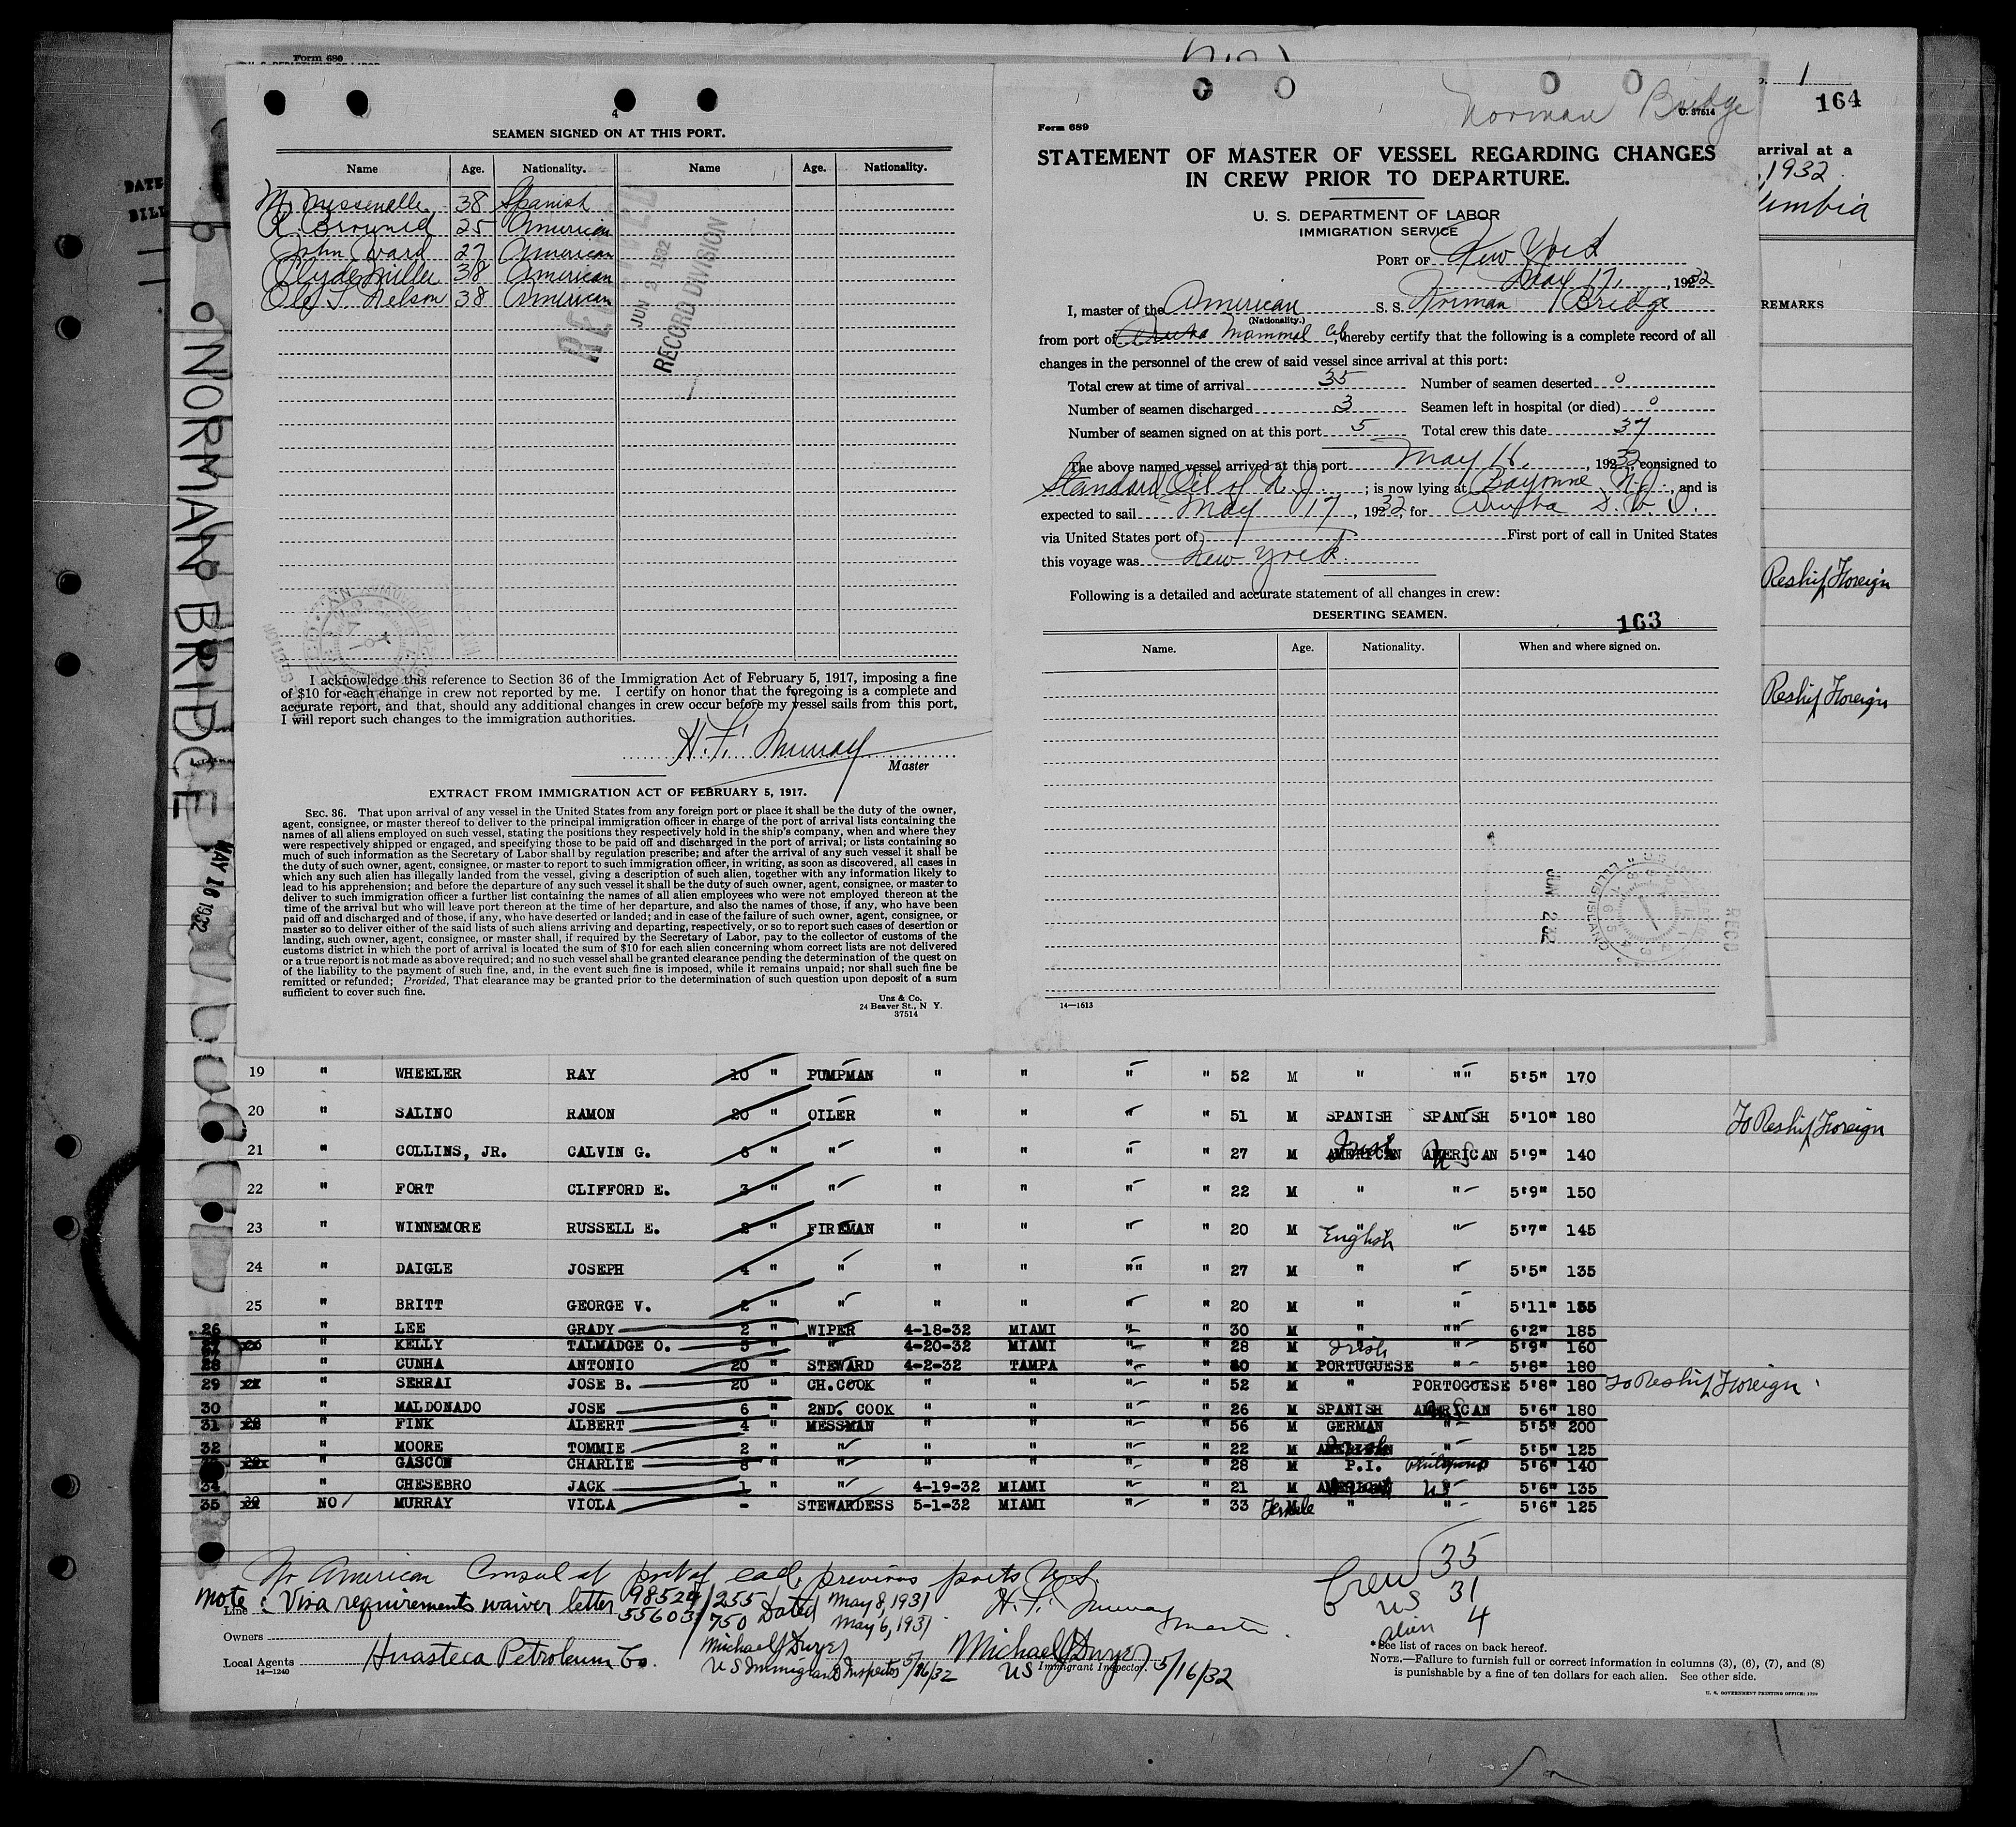 Form 680
DATE
BILL
NORMAN BRIDGE
MAY 16 1932
4
SEAMEN SIGNED ON AT THIS PORT.
Name Age. Nationality. Name Age. Nationality.
38 Spanish
25 American
John Ward 27 American
Clyde Miller 38 American
Olof S. Nelson 38 American
JUN 2 1932
RECORD DIVISION
I acknowledge this reference to Section 36 of the Immigration Act of February 5, 1917, imposing a fine
of $10 for each change in crew not reported by me. I certify on honor that the foregoing is a complete and
accurate report, and that, should any additional changes in crew occur before my vessel sails from this port,
I will report such changes to the immigration authorities.
H. F. Murray
Master
EXTRACT FROM IMMIGRATION ACT OF FEBRUARY 5, 1917.
SEC. 36. That upon arrival of any vessel in the United States from any foreign port or place it shall be the duty of the owner,
agent, consignee, or master thereof to deliver to the principal immigration officer in charge of the port of arrival lists containing the
names of all aliens employed on such vessel, stating the positions they respectively hold in the ship's company, when and where they
were respectively shipped or engaged, and specifying those to be paid off and discharged in the port of arrival; or lists containing so
much of such information as the Secretary of Labor shall by regulation prescribe; and after the arrival of any such vessel it shall be
the duty of such owner, agent, consignee, or master to report to such immigration officer, in writing, as soon as discovered, all cases in
which any such alien has illegally landed from the vessel, giving a description of such alien, together with any information likely to
lead to his apprehension; and before the departure of any such vessel it shall be the duty of such owner, agent, consignee, or master to
deliver to such immigration officer a further list containing the names of all alien employees who were not employed thereon at the
time of the arrival but who will leave port thereon at the time of her departure, and also the names of those, if any, who have been
paid off and discharged and of those, if any, who have deserted or landed; and in case of the failure of such owner, agent, consignee, or
master so to deliver either of the said lists of such aliens arriving and departing, respectively, or so to report such cases of desertion or
landing, such owner, agent, consignee, or master shall, if required by the Secretary of Labor, pay to the collector of customs of the
customs district in which the port of arrival is located the sum of $10 for each alien concerning whom correct lists are not delivered
or a true report is not made as above required; and no such vessel shall be granted clearance pending the determination of the quest on
of the liability to the payment of such fine, and, in the event such fine is imposed, while it remains unpaid; nor shall such fine be
remitted or refunded; Provided, That clearance may be granted prior to the determination of such question upon deposit of a sum
sufficient to cover such fine.
Unz & Co.
24 Beaver St., N Y.
37514
Norman Bridge
U. 37514
Form 689
STATEMENT OF MASTER OF VESSEL REGARDING CHANGES
IN CREW PRIOR TO DEPARTURE.
U. S. DEPARTMENT OF LABOR
IMMIGRATION SERVICE
PORT OF New York
May 17, 1932
I, master of the American S. S. Norman Bridge
(Nationality.)
from port of Aruba Mammal Col, hereby certify that the following is a complete record of all
changes in the personnel of the crew of said vessel since arrival at this port:
Total crew at time of arrival 35 Number of seamen deserted 0
Number of seamen discharged 3 Seamen left in hospital (or died) 0
Number of seamen signed on at this port 5 Total crew this date 37
The above named vessel arrived at this port May 16, 1932, consigned to
Standard Oil of N. J. ; is now lying at Bayonne N.J. and is
expected to sail May 17, 1932, for Aruba D. W. I.
via United States port of First port of call in United States
this voyage was New York.
Following is a detailed and accurate statement of all changes in crew:
DESERTING SEAMEN.
163
Name. Age. Nationality. When and where signed on.
JUN 2
ELLIS ISLAND
RECD
14—1613
1
164
arrival at a
, 1932
REMARKS
Reship Foreign
Reship Foreign
19 " WHEELER RAY 10 " PUMPMAN " " " " 52 M " "" 5'5" 170
20 " SALINO RAMON 20 " OILER " " " " 51 M SPANISH SPANISH 5'10" 180 To Reship Foreign
21 " COLLINS, JR. CALVIN G. 6 " " " " " " 27 M AMERICAN Irish AMERICAN US 5'9" 140
22 " FORT CLIFFORD E. 3 " " " " " " 22 M " " 5'9" 150
23 " WINNEMORE RUSSELL E. 2 " FIREMAN " " " " 20 M " English " 5'7" 145
24 " DAIGLE JOSEPH 4 " " " " "" " 27 M " " 5'5" 135
25 " BRITT GEORGE V. 2 " " " " " " 20 M " " 5'11" 155
26 " LEE GRADY 2 " WIPER 4-18-32 MIAMI " " 30 M " "" 6'2" 185
27 " KELLY TALMADGE O. 5 " " 4-20-32 MIAMI " " 28 M Irish " 5'9" 160
28 " CUNHA ANTONIO 20 " STEWARD 4-2-32 TAMPA " " 60 M PORTUGUESE " 5'8" 180
29 " SERRAI JOSE B. 20 " CH.COOK " " " " 52 M " PORTOGUESE 5'8" 180 To Reship Foreign
30 " MALDONADO JOSE 6 " 2ND. COOK " " " " 26 M SPANISH AMERICAN US 5'6" 180
31 " FINK ALBERT 4 " MESSMAN " " " " 56 M GERMAN " 5'5" 200
32 " MOORE TOMMIE 2 " " " " " " 22 M AMERICAN " 5'5" 125
" GASCON CHARLIE 8 " " " " " " 28 M P.I. Philippine 5'6" 140
34 " CHESEBRO JACK 1 " " 4-19-32 MIAMI " " 21 M AMERICAN US 5'6" 135
35 NO MURRAY VIOLA - STEWARDESS 5-1-32 MIAMI " " 33 Female " " 5'6" 125
No American Consul at port of call, previous ports U S
Note: Visa requirements waiver letter 98524/255 Dated May 8, 1931
55603/750 May 6, 1931
H. F. Murray Master.
Line
Owners
Local Agents Huasteca Petroleum Co.
14—1240
Michael J Dwyer
US Immigrant Inspector 5/16/32
Michael J Dwyer
US Immigrant Inspector. 5/16/32
Crew 35
US 31
alien 4
* See list of races on back hereof.
NOTE.—Failure to furnish full or correct information in columns (3), (6), (7), and (8)
is punishable by a fine of ten dollars for each alien. See other side.
U. S. GOVERNMENT PRINTING OFFICE: 1929